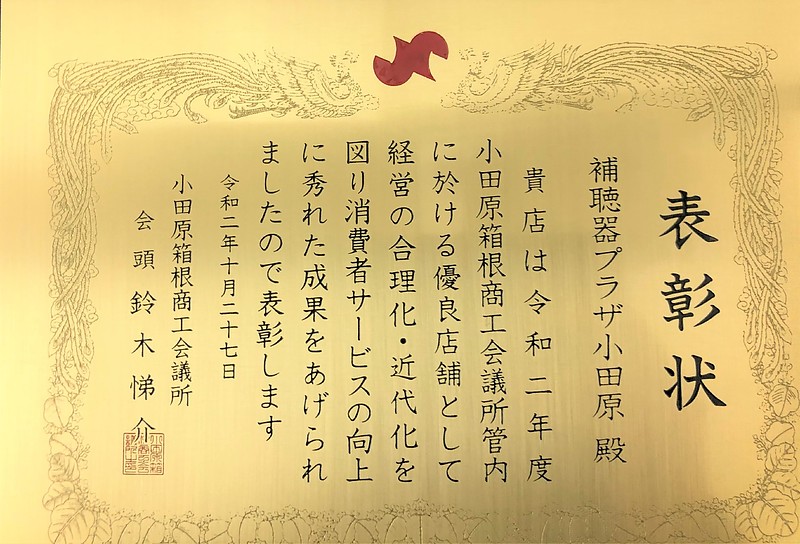 表彰状
補聴器プラザ小田原 殿
貴店は令和二年度
小田原箱根商工会議所管内
に於ける優良店舗として
経営の合理化・近代化を
図り消費者サービスの向上
に秀れた成果をあげられ
ましたので表彰します
令和二年十月二十七日
小田原箱根商工会議所
会頭 鈴木悌介